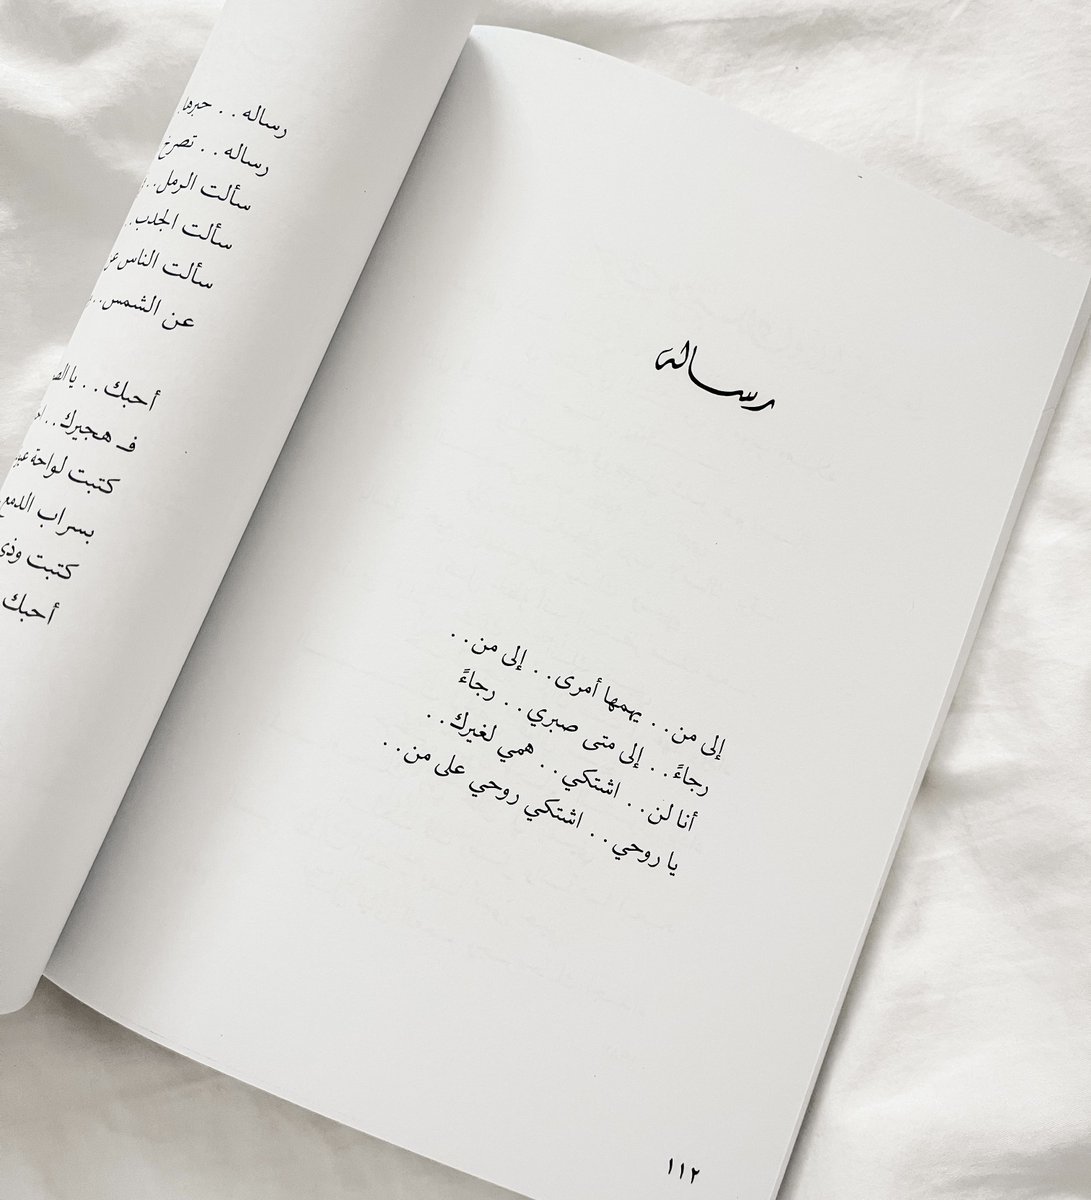 رساله
إلى من.. يهمها أمرى.. إلى من..
رجاءً.. إلى متى صبري.. رجاءً
أنا لن.. اشتكي.. همي لغيرك..
يا روحي.. اشتكي روحي على من..
١١٢
رساله.. حبرها
رساله.. تصرخ
سألت الرمل..
سألت الجدب..
سألت الناس عن
عن الشمس..
أحبك.. يا
فـ هجيرك..
كتبت لواحة
بسراب الدمع
كتبت
أحبك